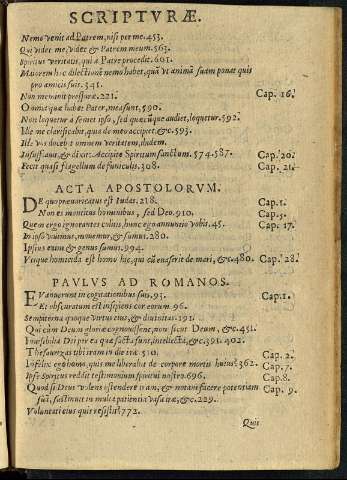 SCRIPTVRÆ.
Nemo venit ad Patrem, nisi per me. 453.
Qui videt me, videt & Patrem meum. 563.
Spiritus veritatis, qui a Patre procedit. 601.
Maiorem hac dilectionem nemo habet, quã vt animã suam ponat quis
pro amicis suis. 341.
Non me mundi 221. Cap. 16.
Omnia quæ habet Pater, mea sunt, 590.
Non loquetur à semet ipso, sed quæcũque audiet, loquetur. 592.
Ille me clarificabit, quia de meo accipiet, &c. 593.
Ille vos docebit omnem veritatem, ibidem.
Insufflauit, & dixit: Accipite Spiritum sanctum. 574. 587. Cap. 20.
Fecit quasi flagellum de funiculis. 308. Cap. 21.
ACTA APOSTOLORVM.
DE qua præuaricatus est Iudas. 218. Cap. 1.
Non es mentitus hominibus, sed Deo. 910. Cap. 5.
Quem ergo ignorantes cultis, hunc ego annuntio vobis. 45. Cap. 17.
In ipso viuimus, mouemur, & sumus. 280.
Ipsius enim & genus sumus. 994.
Vtique homicida est homo hic, qui cũ euaserit de mari, &c. 480. Cap. 28.
PAVLVS AD ROMANOS.
EVanuerunt in cogitationibus suis. 93. Cap. 1.
Et obscuratum est insipiens cor eorum. 96.
Sempiterna quoque virtus eius, & diuinitas. 191.
Qui cùm Deum gloriæ cognouissent, non sicut Deum, &c. 451.
Inuisibilia Dei per ea quæ facta sunt, intellecta, &c. 391. 402.
Thesaurizas tibi iram in die iræ 510. Cap. 2.
Infelix ego homo, quis me liberabit de corpore mortis huius? 362. Cap. 7.
Ipse Spiritus reddit testimonium spiritui nostro. 696. Cap. 8.
Quod si Deus volens ostendere iram, & notam facere potentiam Cap. 9.
suã, sustinuit in multa patientia vasa iræ, &c. 229.
Voluntati eius quis resistit? 772.
Quis